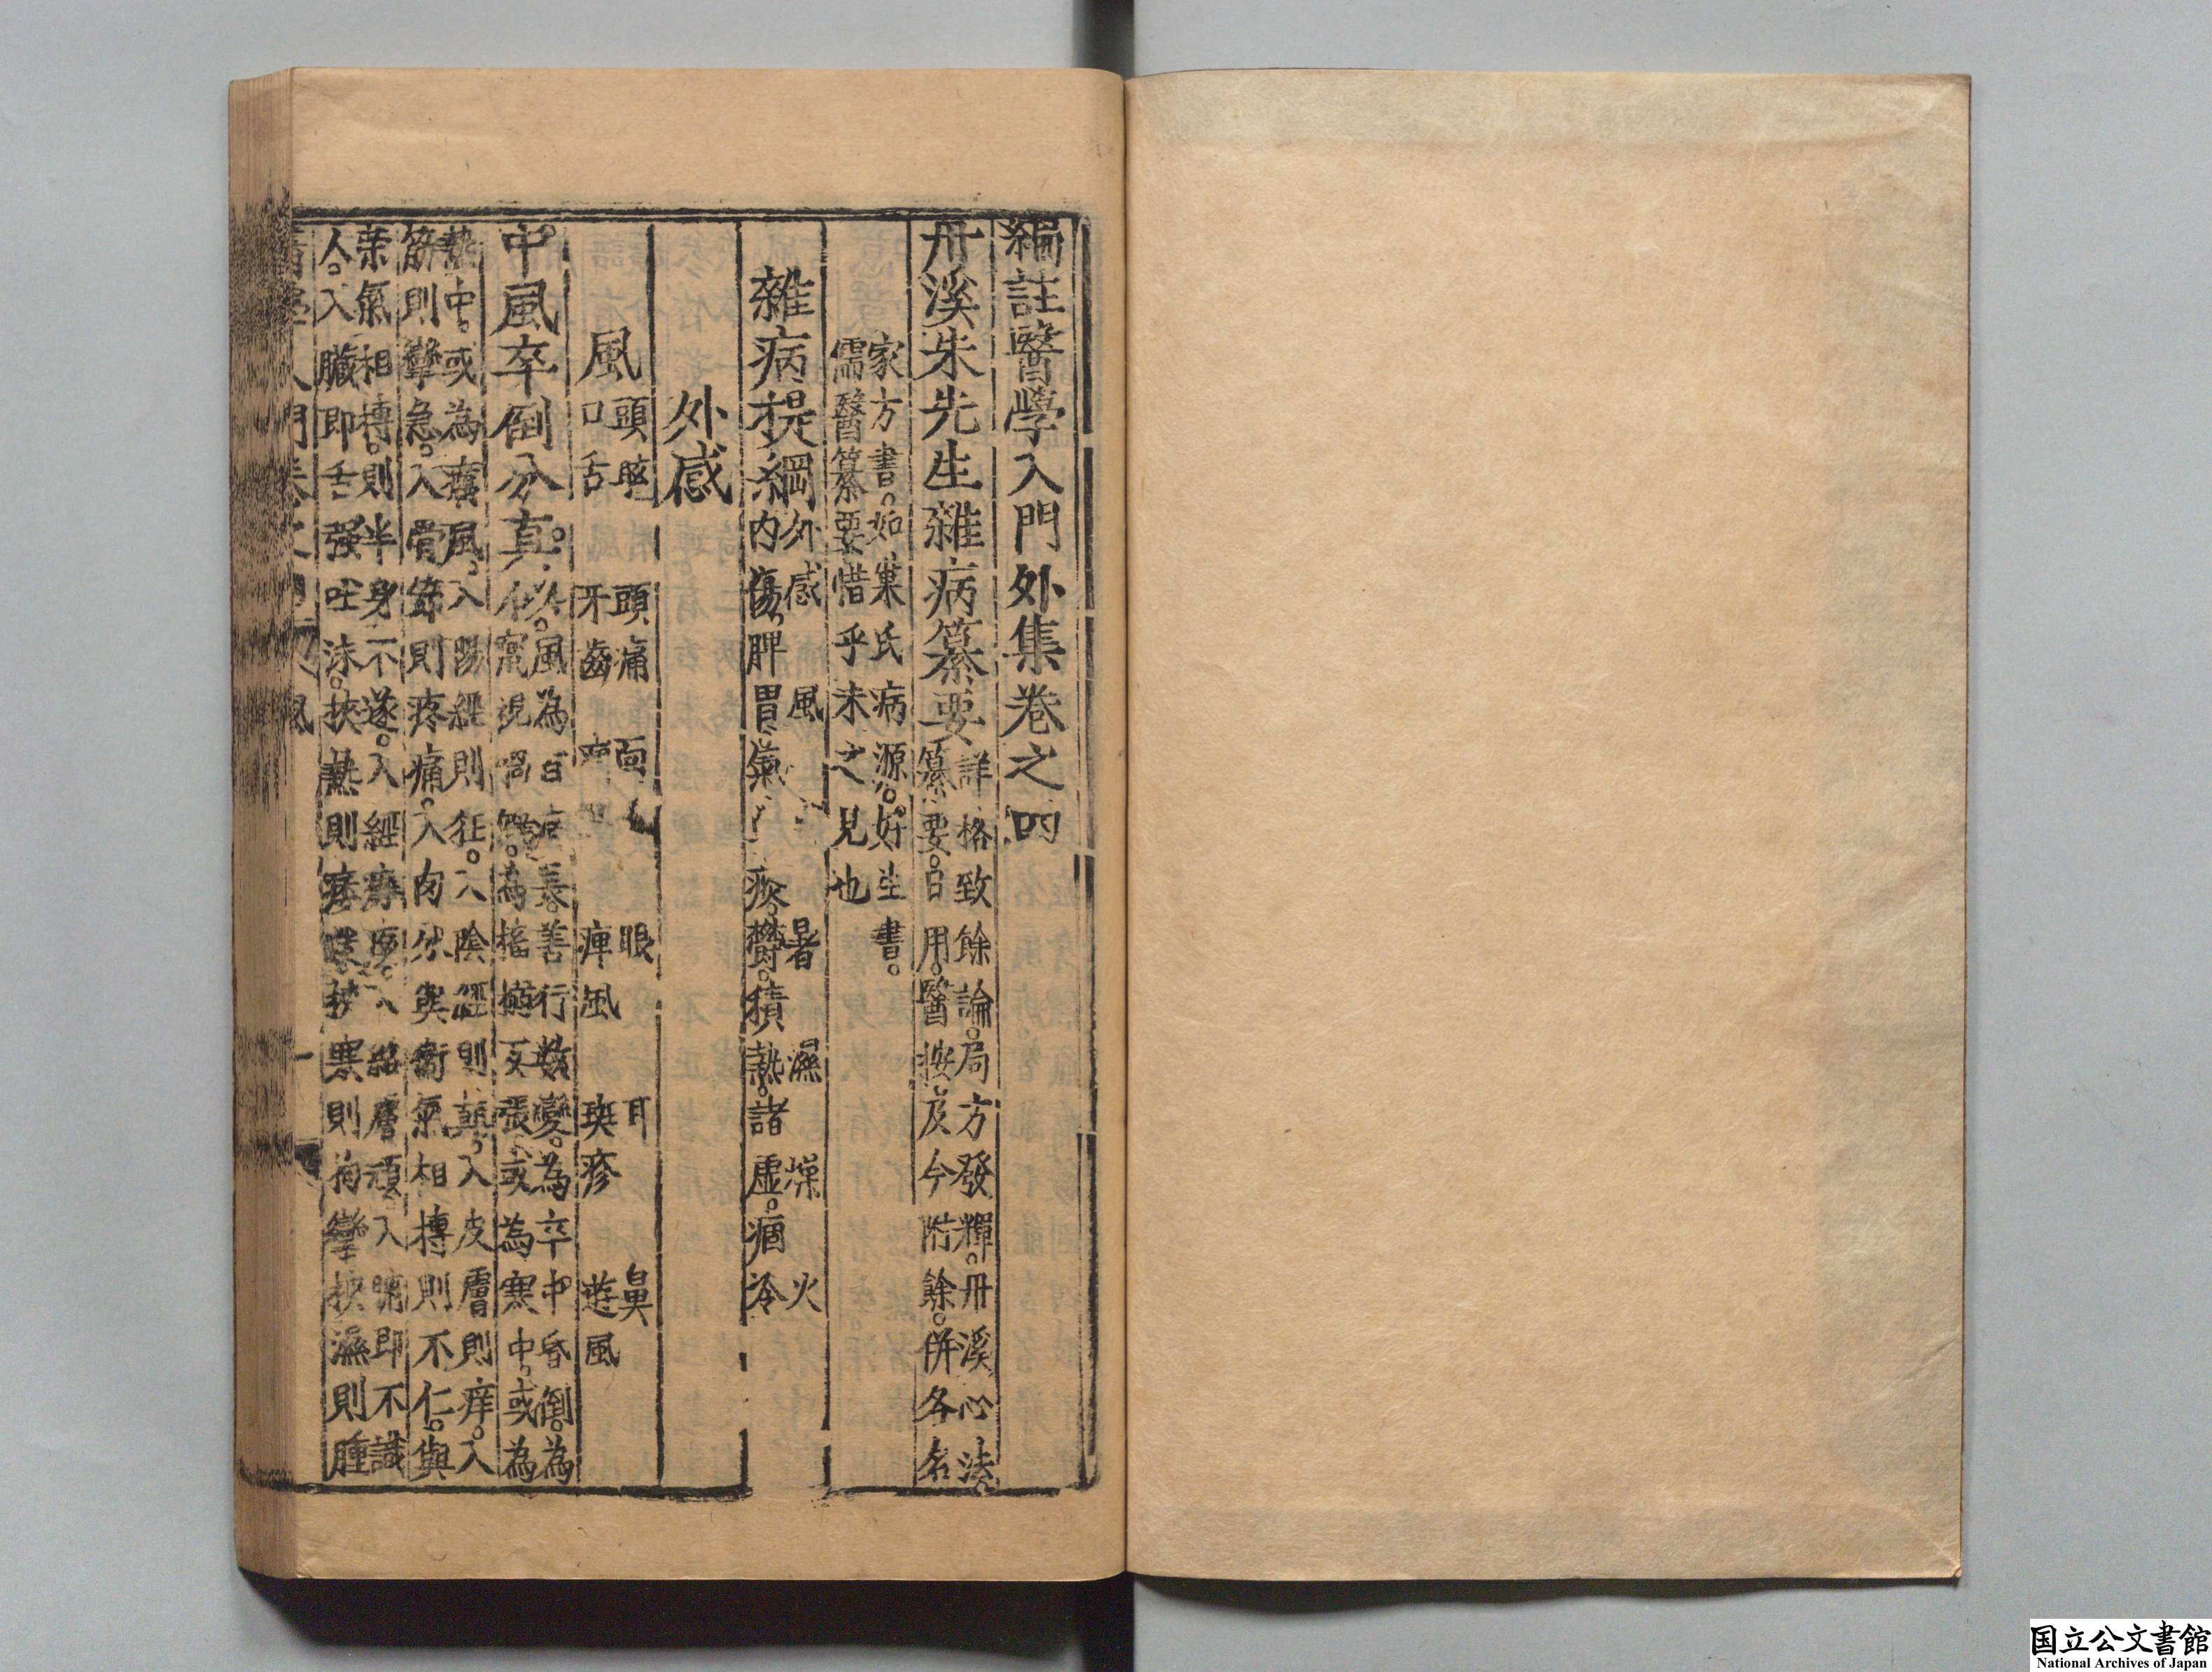 編註醫學入門外集卷之四
丹溪朱先生雜病纂要
詳格致餘論。局方發揮。丹溪心法。
纂要。日用。醫按及今附餘。併各名
家方書。如巢氏病源。好生書。
儒醫纂要惜乎未之見也
雜病提綱
外感 風 暑 濕 燥 火
内傷。脾胃氣 痰。欝。積熱。諸虛。痼冷
外感
風
頭眩 頭痛 面 眼 耳 鼻
口舌 牙齒 痹風 斑疹 遊風
中風卒倒分真
風為百病長。善行數變。為卒中昏倒。為
窜視喎僻。為搐搦反張。或為寒中。或為
熱中。或為癘風。入陽經則狂。入陰經則顛。入皮膚則痒。入
筋則攣急。入骨節則疼痛。入肉分與衛氣相搏則不仁。與
荣氣相搏。則半身不遂。入經 入絡膚頑。入腑即不識
人。入臟即舌强吐沫。挾熱則 挾寒則拘攣挾濕則腫
國立公文書館
National Archives of Japan